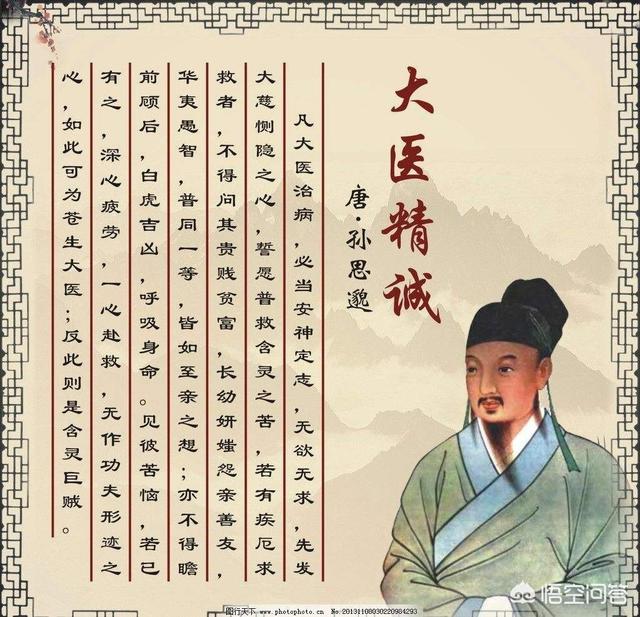 大医精诚
唐·孙思邈
凡大医治病，必当安神定志，无欲无求，先发
大慈恻隐之心，誓愿普救含灵之苦，若有疾厄求
救者，不得问其贵贱贫富，长幼妍媸怨亲善友，
华夷愚智，普同一等，皆如至亲之想；亦不得瞻
前顾后，白虎吉凶，呼吸身命。见彼苦恼，若已
有之，深心疲劳，一心赴救，无作功夫形迹之
心，如此可为苍生大医；反此则是含灵巨贼。
悟空问答
图行天下 www.photophoto.cn No.20131108030220984293